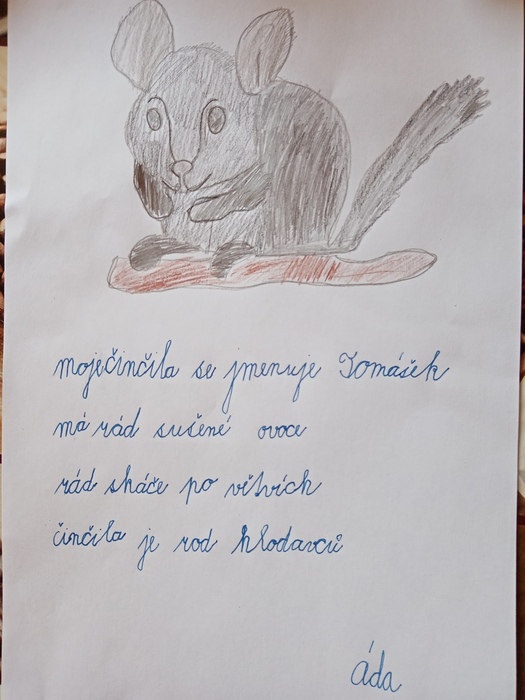 moječinčila se jmenuje Tomášek
má rád sušené ovoce
rád skáče po větvích
činčila je rod hlodavců
Áda